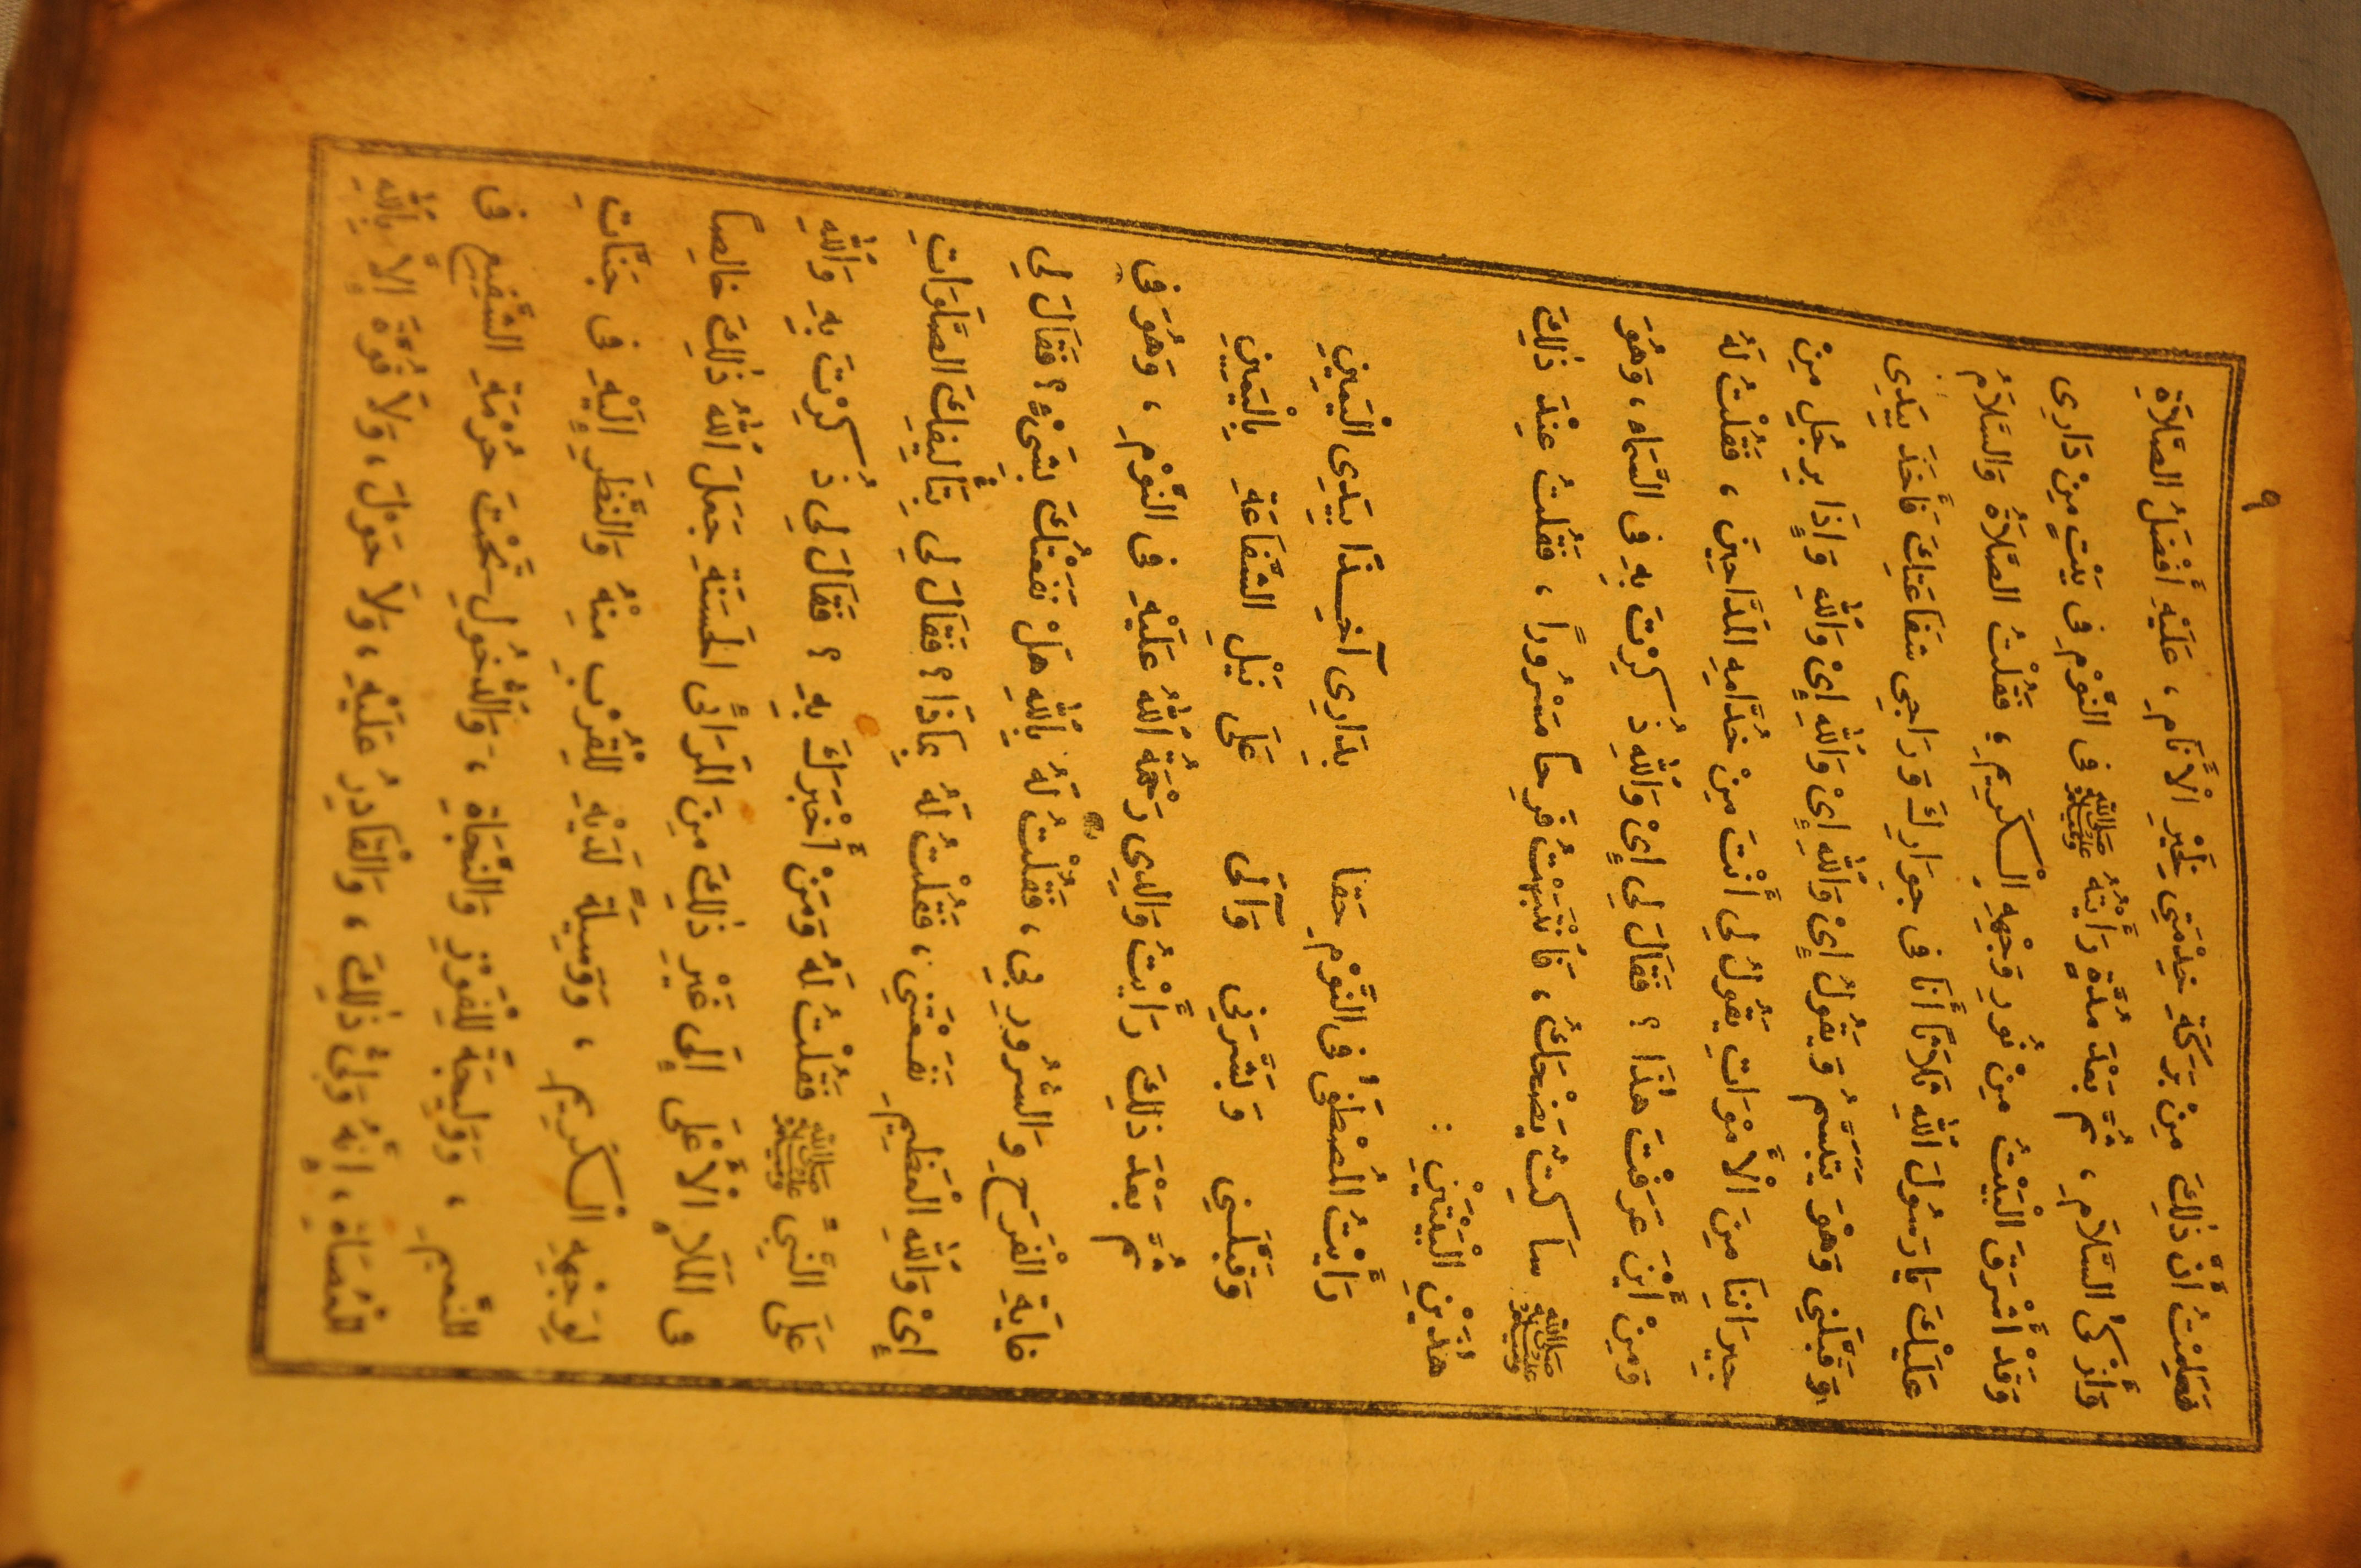 ٩
فَعَلِمْتُ أَنَّ ذٰلِكَ مِنْ بَرَكَةِ خِدْمَتِي لِخَيْرِ الْأَنَامِ ، عَلَيْهِ أَفْضَلُ الصَّلَاةِ
وَأَزْكَى السَّلَامِ ، ثُمَّ بَعْدَ مُدَّةٍ رَأَيْتُهُ ﷺ فِى النَّوْمِ فِى بَيْتٍ مِنْ دَارِى
وَقَدْ أَشْرَقَ الْبَيْتُ مِنْ نُورِ وَجْهِهِ الْكَرِيمِ ، فَقُلْتُ الصَّلَاةُ وَالسَّلَامُ
عَلَيْكَ يَا رَسُولَ اللهِ ثَلَاثًا أَنَا فِى جِوَارِكَ وَرَاجِى شَفَاعَتِكَ فَأَخَذَ بِيَدِى
وَقَبَّلَنِي وَهُوَ يَتَبَسَّمُ وَيَقُولُ إِىْ وَاللهِ إِىْ وَاللهِ إِىْ وَاللهِ وَإِذَا بِرَجُلٍ مِنْ
جِيرَانِنَا مِنَ الْأَمْوَاتِ يَقُولُ لِى أَنْتَ مِنْ خُدَّامِهِ الْمَدَّاحِينَ ، فَقُلْتُ لَهُ
وَمِنْ أَيْنَ عَرَفْتَ هٰذَا ؟ فَقَالَ لِى إِىْ وَاللهِ ذُكِرْتَ بِهِ فِى السَّمَاءِ ، وَهُوَ
ﷺ سَاكِتٌ يَضْحَكُ ، فَانْتَبَهْتُ فَرِحًا مَسْرُورًا ، فَقُلْتُ عِنْدَ ذٰلِكَ
هٰذَيْنِ الْبَيْتَيْنِ :
رَأَيْتُ الْمُصْطَفَى فِى النَّوْمِ حَقًا بِدَارِى آخِـذًا بِيَدِى الْيَمِينِ
وَقَبَّلَنِي وَبَشَّرَنِى وَآلَى عَلَى نَيْلِ الشَّفَاعَةِ بِالْيَمِينِ
ثُمَّ بَعْدَ ذٰلِكَ رَأَيْتُ وَالِدِى رَحْمَةُ اللهِ عَلَيْهِ فِى النَّوْمِ ، وَهُوَ فِى
غَايَةِ الْفَرَحِ وَالسُّرُورِ بِى ، فَقُلْتُ لَهُ بِاللهِ هَلْ نَفَعْتُكَ بِشَىْءٍ ؟ فَقَالَ لِى
إِىْ وَاللهِ الْعَظِيمِ نَفَعْتَنِي ، فَقُلْتُ لَهُ بِمَاذَا ؟ فَقَالَ لِى بِتَأْلِيفِكَ الصَّلَوَاتِ
عَلَى النَّبِىِّ ﷺ فَقُلْتُ لَهُ وَمَنْ أَخْبَرَكَ بِهِ ؟ فَقَالَ لِى ذُكِرْتَ بِهِ وَاللهِ
فِى الْمَلَإِ الْأَعْلَى إِلَى غَيْرِ ذٰلِكَ مِنَ الْمَرَائِى الْحَسَنَةِ جَعَلَ اللهُ ذٰلِكَ خَالِصًا
لِوَجْهِهِ الْكَرِيمِ ، وَوَسِيلَةً لَدَيْهِ لِلْقُرْبِ مِنْهُ وَالنَّظَرِ إِلَيْهِ فِى جَنَّاتِ
النَّعِيمِ ، وَوَلِيجَةً لِلْفَوْزِ وَالنَّجَاةِ ، وَالدُّخُولِ تَحْتَ حُرْمَةِ الشَّفِيعِ فِى
الْعُصَاةِ ، إِنَّهُ وَلِىُّ ذٰلِكَ ، وَالْقَادِرُ عَلَيْهِ ، وَلَا حَوْلَ ، وَلَا قُوَّةَ إِلَّا بِاللهِ